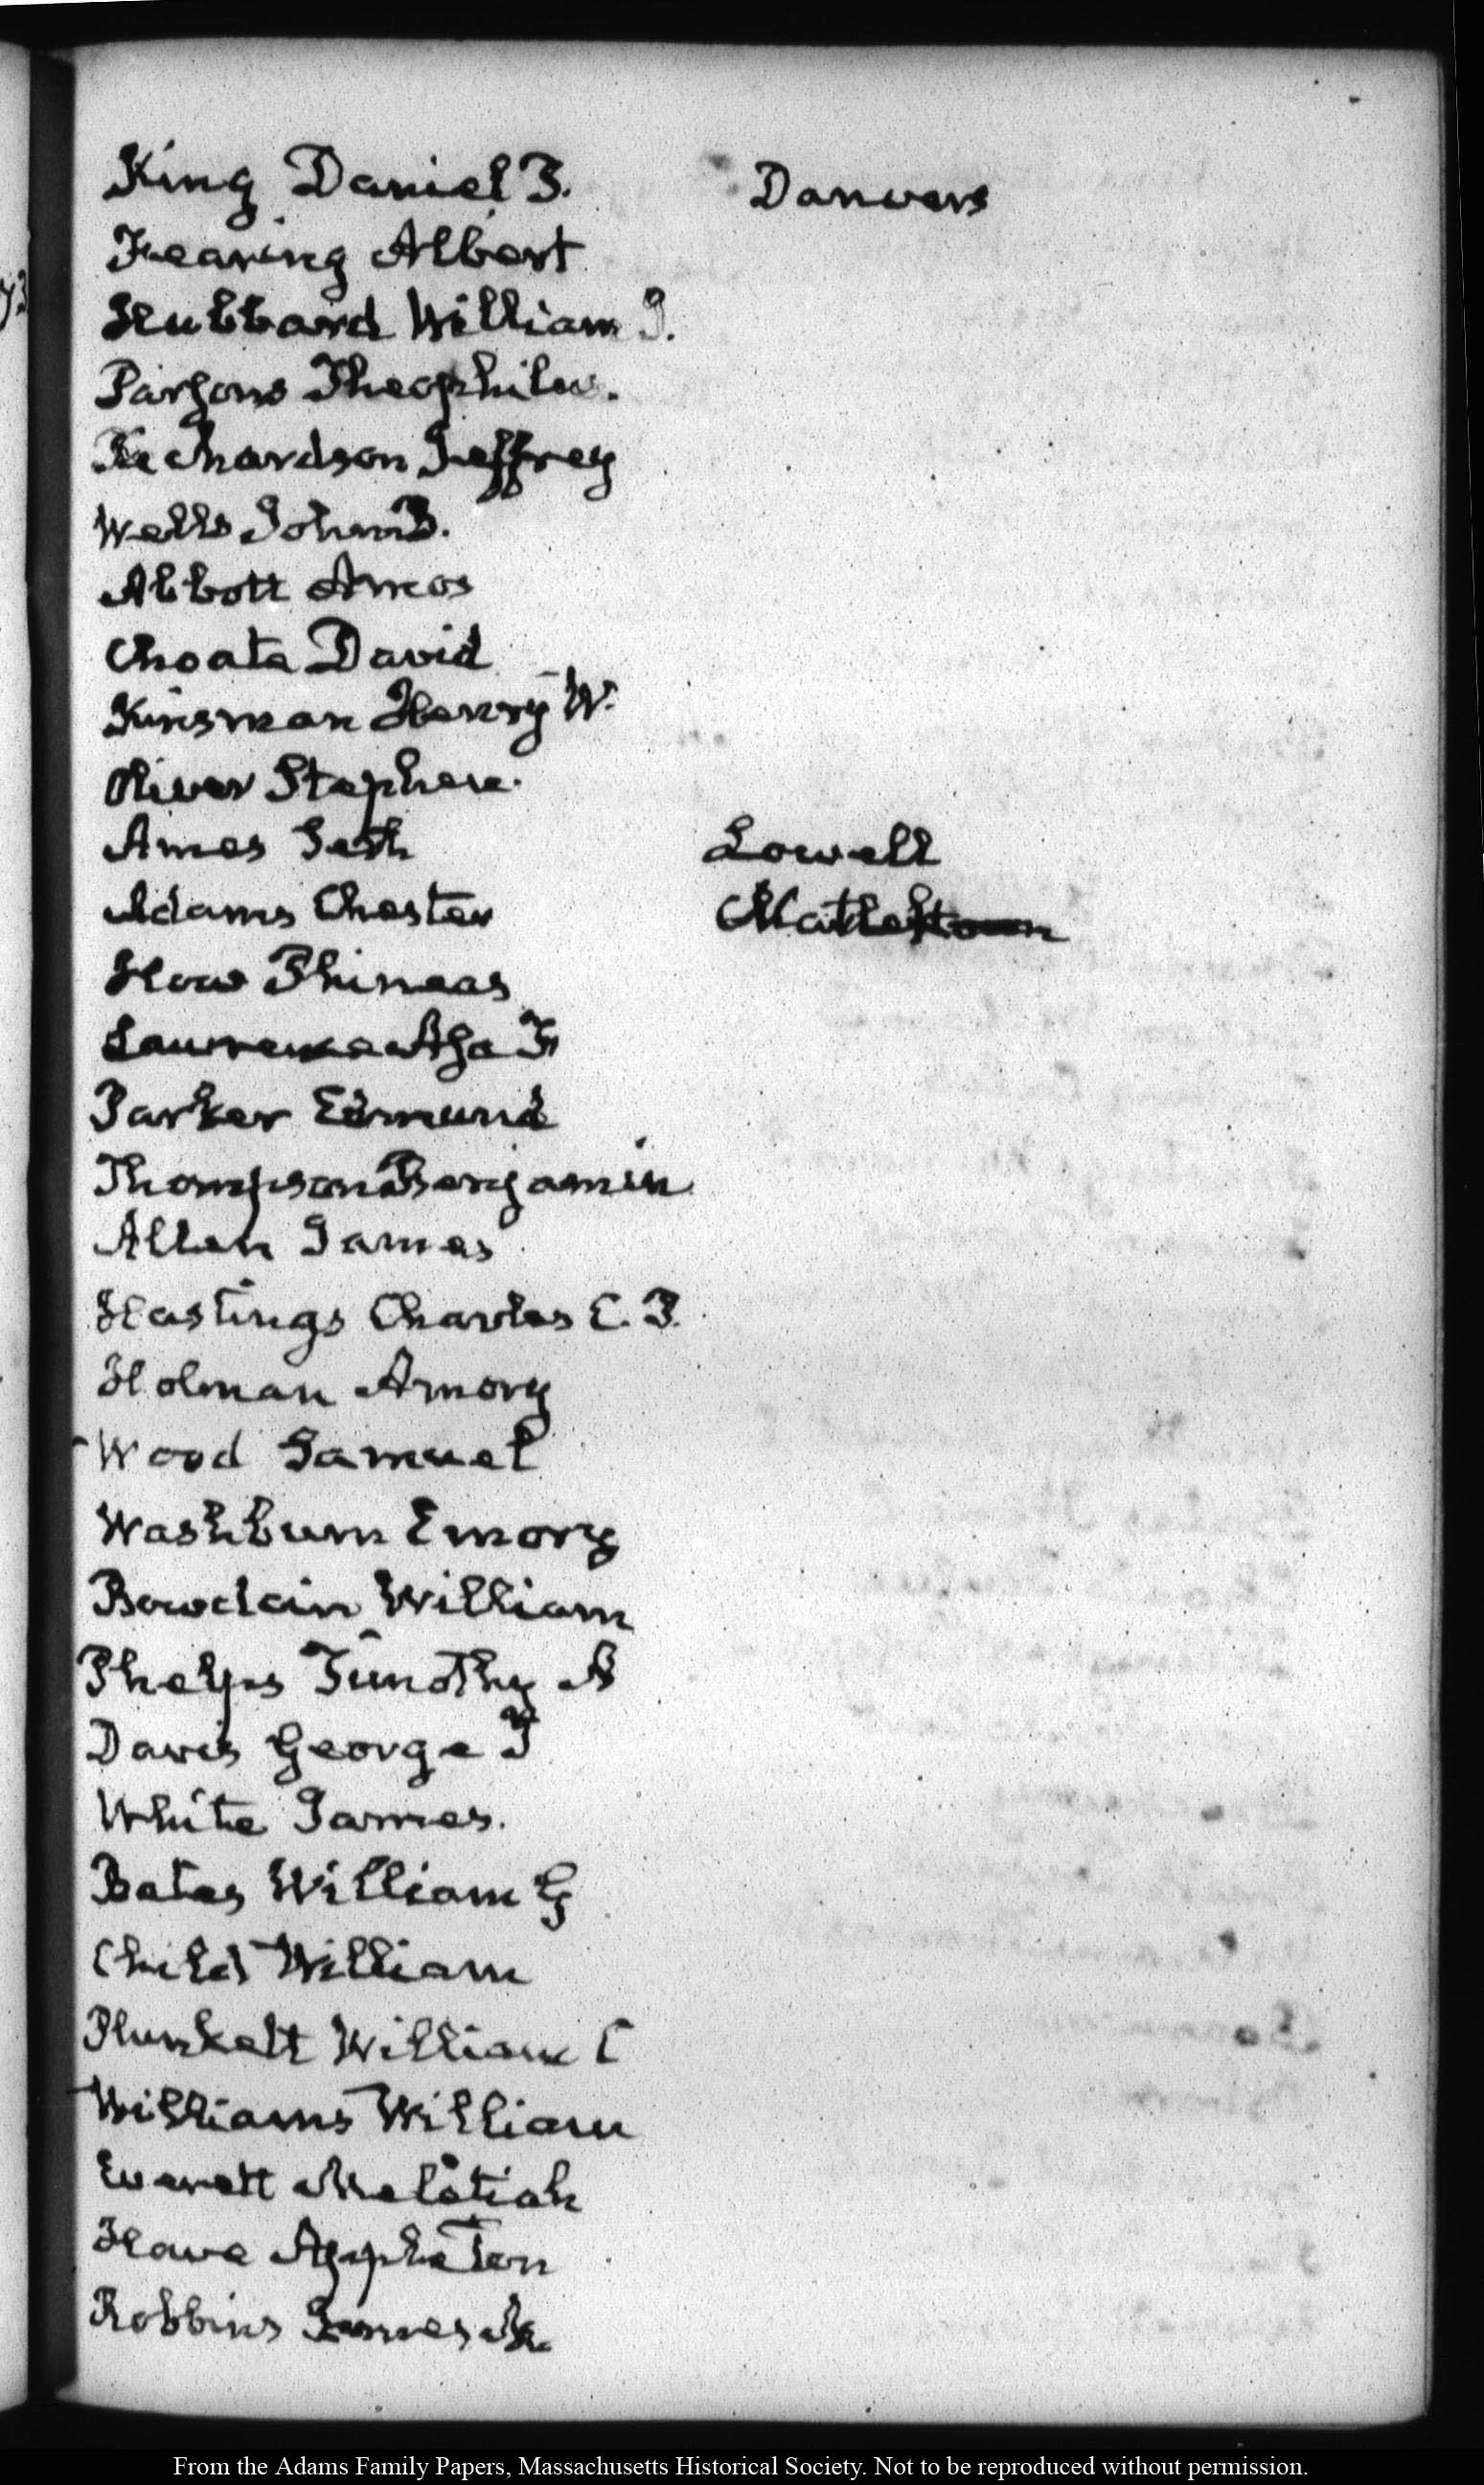 King Daniel P. Danvers
Fearing Albert
Hubbard William J.
Parsons Theophilus.
Richardson Jeffrey
Wells John B.
Abbott Amos
Choate David
Kinsman Henry W.
Oliver Stephen.
Ames Seth Lowell
Adams Chester
How Phineas
Lawrence Asa F
Parker Edmund
Thompson Benjamin
Allen James
Hastings Charles C. P.
Holman Amory
Wood Samuel
Washburn Emory
Bowdoin William
Phelps Timothy A
Davis George T
White James.
Bates William G
Child William
Plunkett William C
Williams William
Everett Melatiah
Howe Appleton
Robbins James
From the Adams Family Papers, Massachusetts Historical Society. Not to be reproduced without permission.